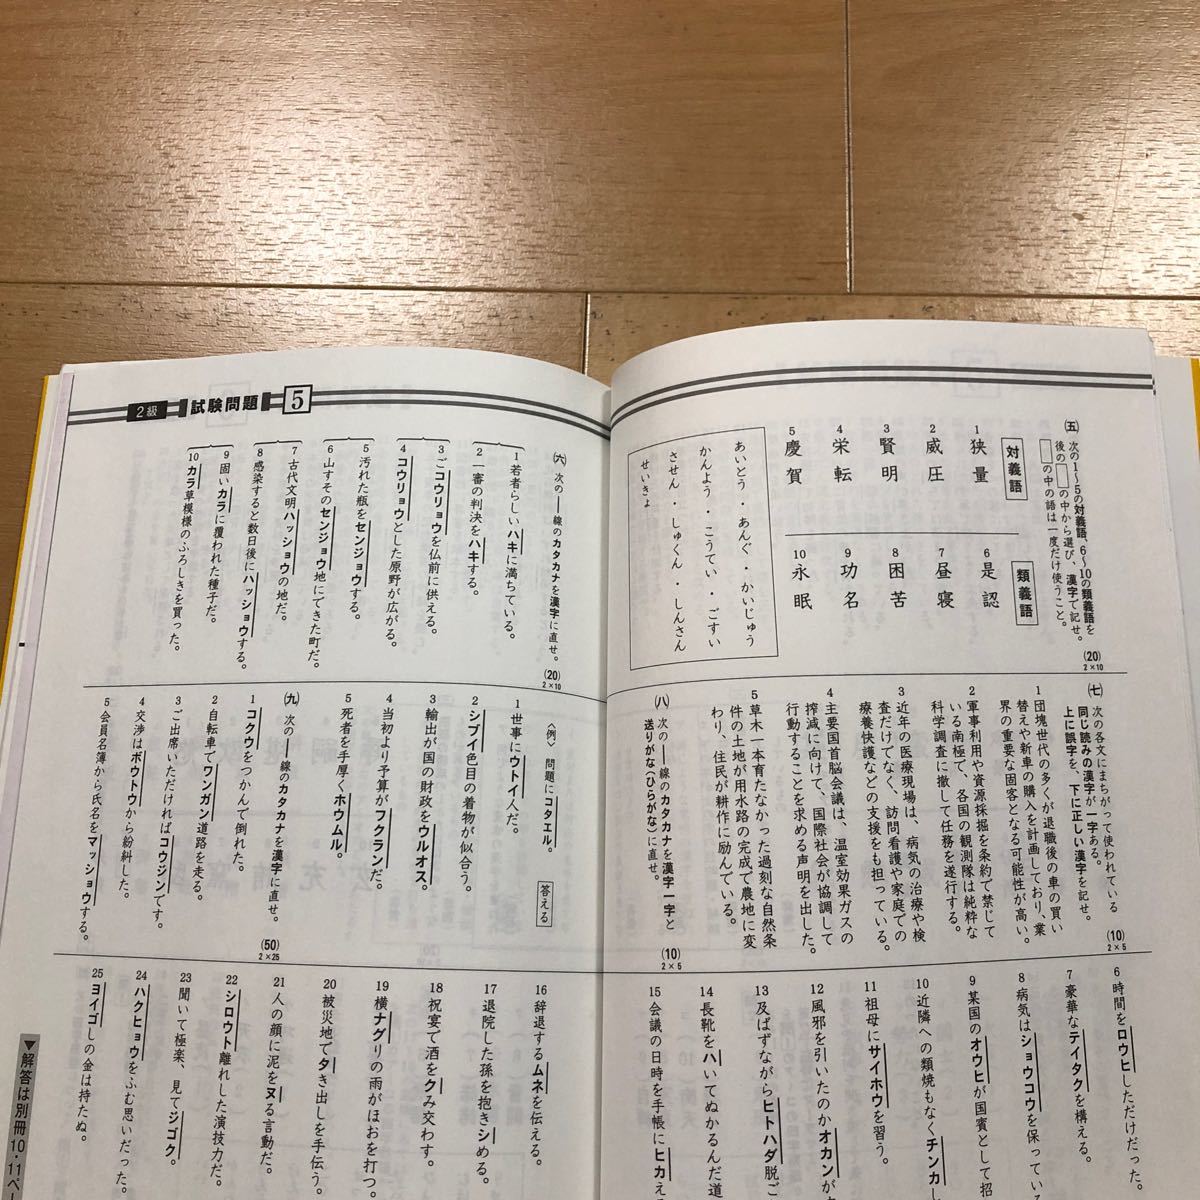 ㈤ 次の1〜5の対義語、6〜10の類義語を
後の□の中から選び、漢字で記せ。
□の中の語は一度だけ使うこと。
(20)
2×10
対義語
1 狭量
2 威圧
3 賢明
4 栄転
5 慶賀
類義語
6 是認
7 昼寝
8 困苦
9 功名
10 永眠
あいとう・あんぐ・かいじゅう
かんよう・こうてい・ごすい
させん・しゅくん・しんさん
せいきょ
2級 試験問題 5
㈥ 次の――線のカタカナを漢字に直せ。
(20)
2×10
1 若者らしいハキに満ちている。
2 一審の判決をハキする。
3 ごコウリョウを仏前に供える。
4 コウリョウとした原野が広がる。
5 汚れた瓶をセンジョウする。
6 山すそのセンジョウ地にできた町だ。
7 古代文明ハッショウの地だ。
8 感染すると数日後にハッショウする。
9 固いカラに覆われた種子だ。
10 カラ草模様のふろしきを買った。
㈦ 次の各文にまちがって使われている
同じ読みの漢字が一字ある。
上に誤字を、下に正しい漢字を記せ。
(10)
2×5
1 団塊世代の多くが退職後の車の買い
替えや新車の購入を計画しており、業
界の重要な固客となる可能性が高い。
2 軍事利用や資源採掘を条約で禁じて
いる南極で、各国の観測隊は純粋な
科学調査に撤して任務を遂行する。
3 近年の医療現場は、病気の治療や検
査だけでなく、訪問看護や家庭での
療養快護などの支援をも担っている。
4 主要国首脳会議は、温室効果ガスの
搾減に向けて、国際社会が協調して
行動することを求める声明を出した。
5 草木一本育たなかった過刻な自然条
件の土地が用水路の完成で農地に変
わり、住民が耕作に励んでいる。
㈧ 次の――線のカタカナを漢字一字と
送りがな(ひらがな)に直せ。
(10)
2×5
〈例〉 問題にコタエル。 答える
1 世事にウトイ人だ。
2 シブイ色目の着物が似合う。
3 輸出が国の財政をウルオス。
4 当初より予算がフクランだ。
5 死者を手厚くホウムル。
㈨ 次の――線のカタカナを漢字に直せ。
(50)
2×25
1 コクウをつかんで倒れた。
2 自転車でワンガン道路を走る。
3 ご出席いただければコウジンです。
4 交渉はボウトウから紛糾した。
5 会員名簿から氏名をマッショウする。
6 時間をロウヒしただけだった。
7 豪華なテイタクを構える。
8 病気はショウコウを保っている
9 某国のオウヒが国賓として招
10 近隣への類焼もなくチンカし
11 祖母にサイホウを習う。
12 風邪を引いたのかオカンが
13 及ばずながらヒトハダ脱ご
14 長靴をハいてぬかるんだ道
15 会議の日時を手帳にヒカえ
16 辞退するムネを伝える。
17 退院した孫を抱きシめる。
18 祝宴で酒をクみ交わす。
19 横ナグりの雨がほおを打つ。
20 被災地でタき出しを手伝う。
21 人の顔に泥をヌる言動だ。
22 シロウト離れした演技力だ。
23 聞いて極楽、見てジゴク。
24 ハクヒョウをふむ思いだった。
25 ヨイゴしの金は持たぬ。
▼解答は別冊10・11ペー